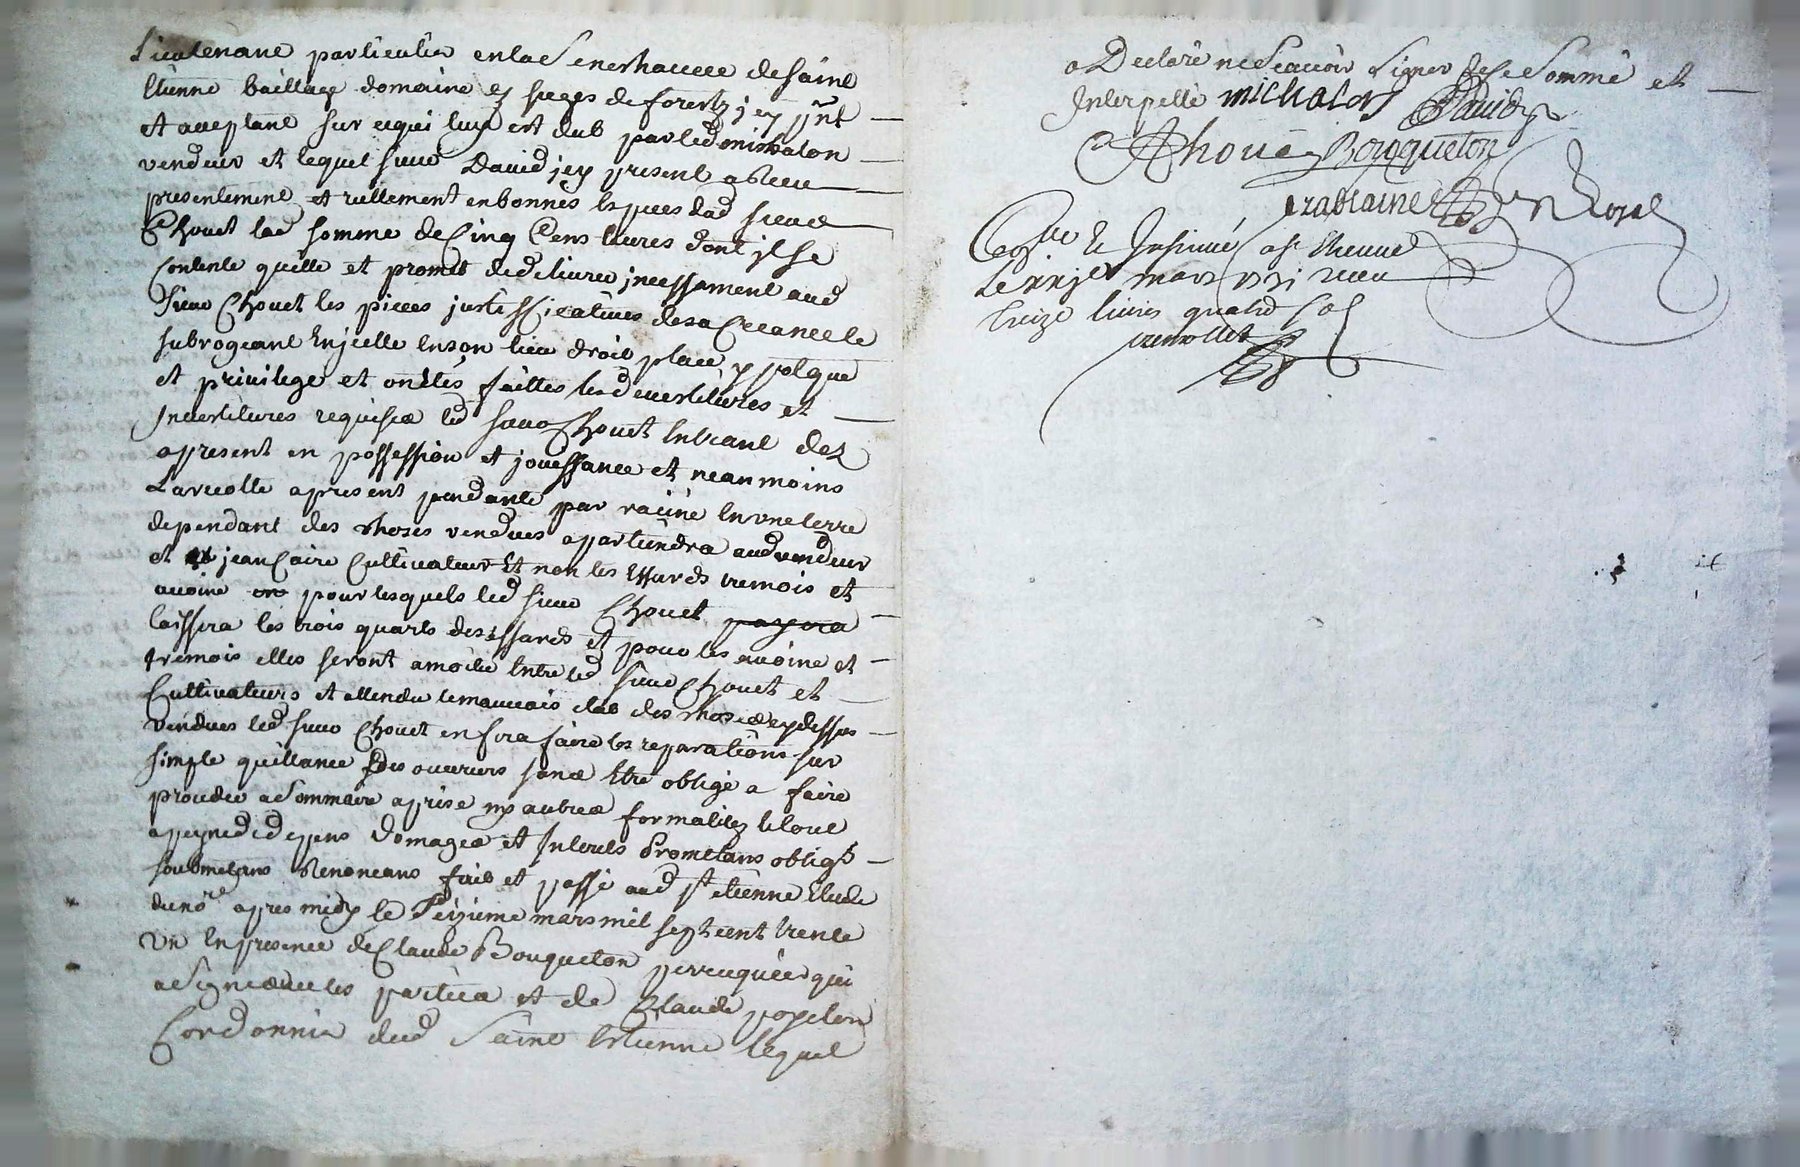 Lieutenant particulier en la Senechaucee de Saint
Etienne bailliage domaine et sieges de forertz jcy pnt
et aceptant sur ce qui luy est dub par led michalon
vendeur et lequel sieur David jcy present a Receu
presentement et reellement en bonnes Especes dud sieur
Chouet lad somme de Cinq Cens livres dont jl se
Contente quitte et promet de delivrer jncessament aud
Sieur Chouet les pieces justifficatives de sa Creance le
subrogeant En jcelle En son lieu droit place ypoteque
et privilege et ont Etés faittes les devertitures et
Jnvertitures requises led sieur Chouet Entrant dez
apresent en possession et jouissance et neanmoins
La recolte apresent pendante par racine En une terre
dependant des choses vendues apartiendra aud vendeur
et jean Caire Cultivateur Et non les Essards tremois et
avoine pour lesquels led sieur Chouet payera
laissera les trois quarts des Essards et pour les avoine et
tremois elles seront a moitie Entre led sieur Chouet et
Cultivateurs et attendu le mauvais etat des choses cy dessus
vendues led sieur Chouet en fera faire les reparations sur
simple quittance des ouvriers sans Etre obligé a faire
proceder a Sommaire aprise ny autres formalitez le tout
a peyne de depens domages et Jnterets Prometans obligt
soubmetans Renoncans fait et passé aud st etienne Etude
du nore apres midy le Seizieme mars mil sept cent trente
un En presence de Claude Bouqueton perruquier qui
a Signé avec les parties et de Claude poyeton
Cordonnier dud Saint Etienne lequel
a Declaré ne Scavoir Signer de ce Sommé et
Interpellé michalon David
Chouet Bouqueton
Conlle & Insinué a St Etienne
Le mars 1731 receu
treize livres quatre sols